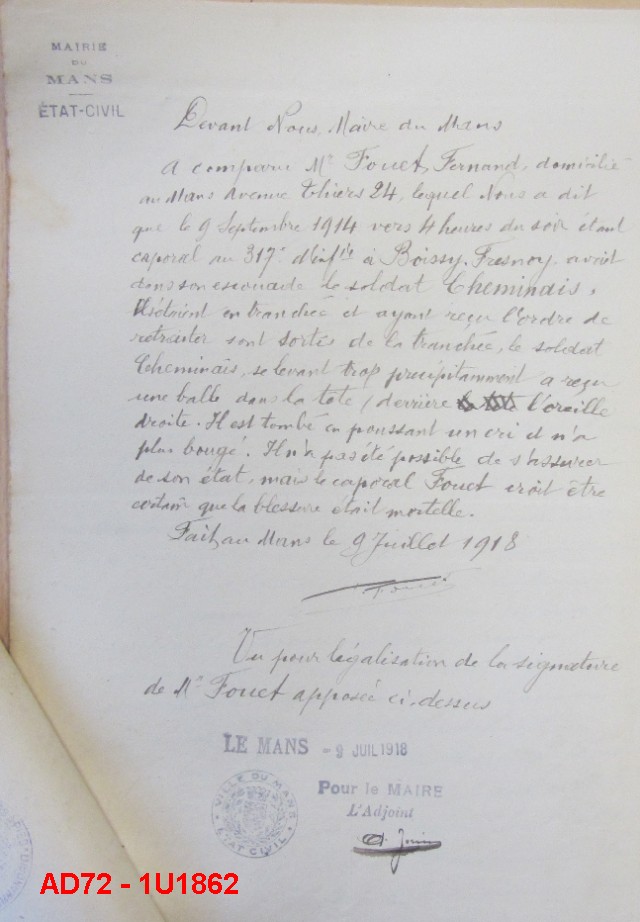 MAIRIE
DU
MANS
ÉTAT-CIVIL
Devant Nous, Maire du Mans
A comparu Mr Fouet, Fernand, domicilié
au Mans Avenue Thiers 24, lequel Nous a dit
que le 9 Septembre 1914 vers 4 heures du soir étant
caporal au 317e d'Infie à Boissy-Fresnoy, avait
dans son escouade le soldat Cheminais,
Ils étaient en tranchée et ayant reçu l'ordre de
retraiter sont sortis de la tranchée, le soldat
Cheminais, se levant trop précipitamment a reçu
une balle dans la tête (derrière l'oreille
droite. Il est tombé en poussant un cri et n'a
plus bougé. Il n'a pas été possible de s'assurer
de son état, mais le caporal Fouet croit être
certain que la blessure était mortelle.
Fait au Mans le 9 Juillet 1918
Fouet
Vu pour légalisation de la signature
de Mr Fouet apposée ci-dessus
LE MANS - 9 JUIL 1918
VILLE DU MANS
ETAT CIVIL
Pour le MAIRE
L'Adjoint
AD72 - 1U1862